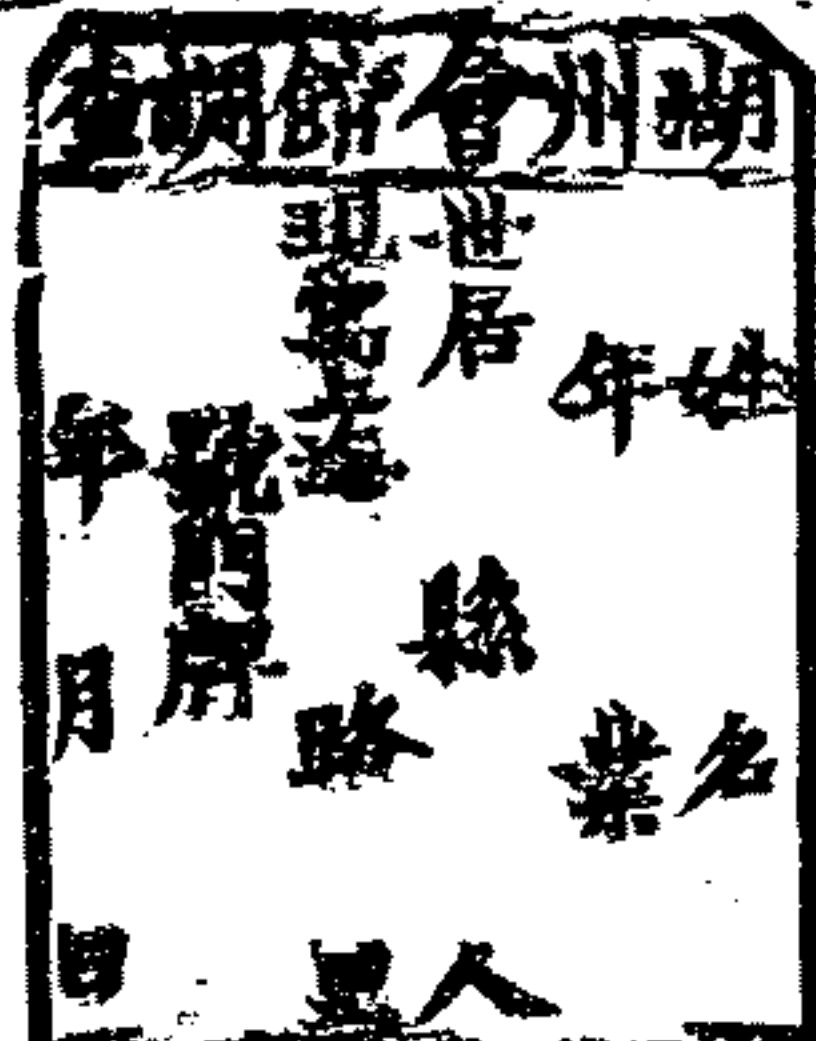 湖州會館調查
姓 名
年 業
世居 縣 人
現寓上海 路 里
號門牌
年 月 日